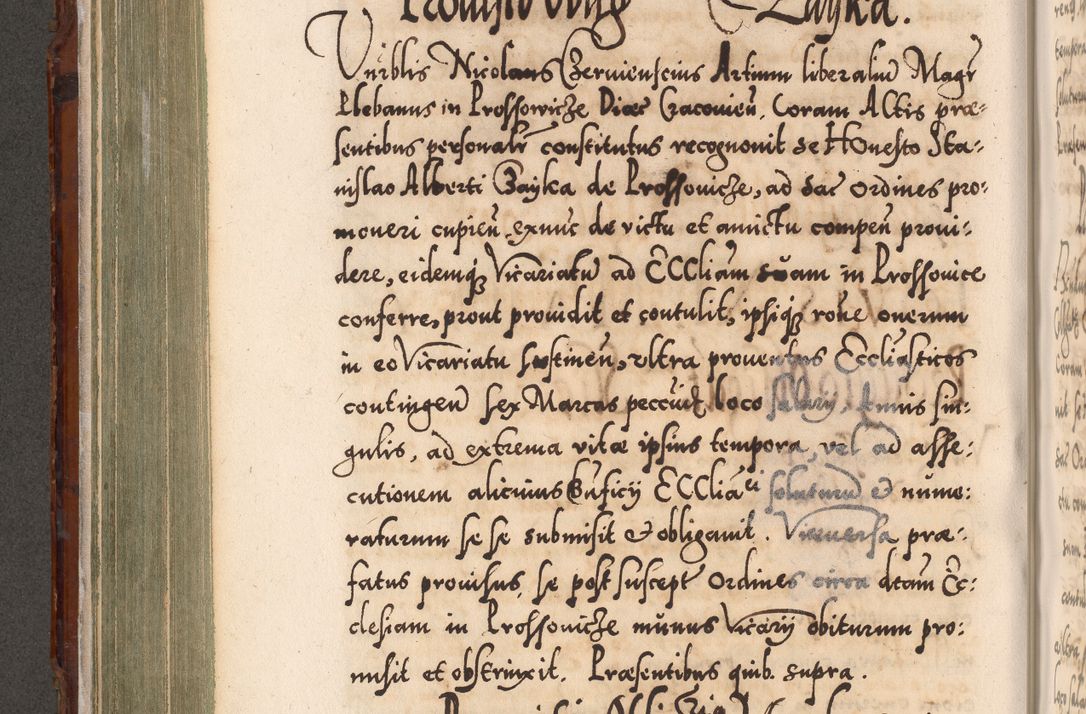 Provisio Czayka.
Vnrblis Nicolaus Czervienscius Artium liberaliũ Magr
Plebanus in Prossowicze Diaec Cracovieñ. Coram Actis præ-
sentibus personalr̃ constitutus recognovit se Honesto Sta-
nislao Alberti Czayka de Prossovicze, ad sac ordines pro-
moveri cupieñ, exnuc de victu et amictu compeñ provi-
dere, eidemq; Vicariatũ ad ECCliam suam in Prossovice
conferre, prout providit et contulit, ipsiq; rõne onerum
in eo Vicariatu sustineñ, ultra proventus Eccliasticos
contingeñ sex Marcas peccuñ loco salarij, annis sin-
gulis, ad extrema vitæ ipsius tempora, vel ad asse-
cutionem alicuius Bñficij ECCliã ei soluturũ & nume-
raturum se se submisit & obligavit. Viceversa præ-
fatus provisus, se post suscept ordines circa dtam Ec-
clesiam in Prossovicze munus Vicarij obiturum pro-
misit et obstrinxit. Præsentibus quib. supra.